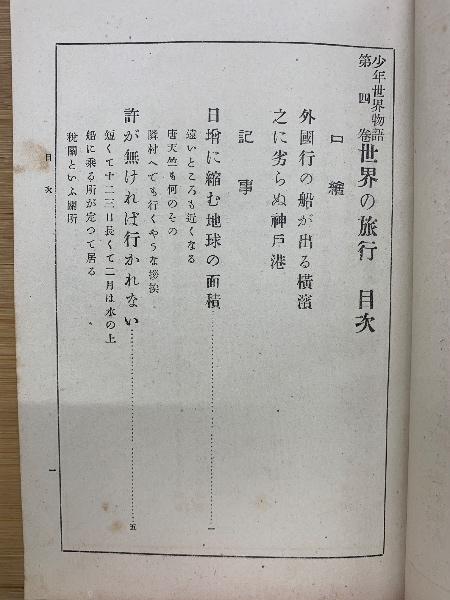 少年世界物語
第四卷
世界の旅行 目次
口繪
外國行の船が出る橫濱
之に劣らぬ神戸港
記事
日增に縮む地球の面積……一
遠いところも近くなる
唐天竺も何のその
隣村へでも行くやうな挨拶
許が無ければ行かれない……五
短くて十二三日長くて二月は水の上
船に乘る所が定つて居る
稅關といふ關所
目次
一